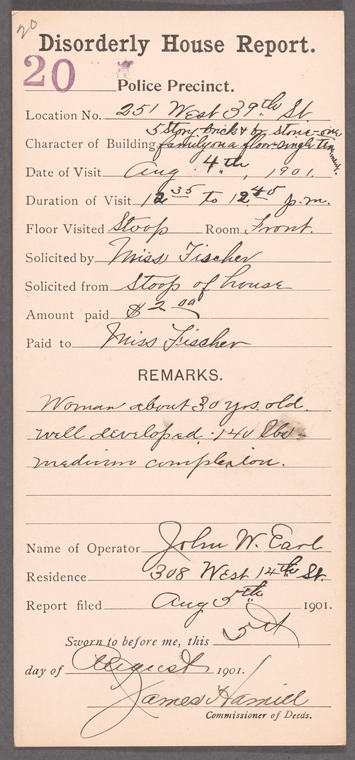 20
Disorderly House Report.
20
Police Precinct.
Location No. 251 West 39th St.
Character of Building 5 story brick & br. stone - one
family on a floor - single Tenement.
Date of Visit Aug. 4th, 1901.
Duration of Visit 12 35 to 12 45 p.m.
Floor Visited Stoop Room Front.
Solicited by Miss Fischer
Solicited from Stoop of house
Amount paid $2 00
Paid to Miss Fischer
REMARKS.
Woman about 30 yrs. old.
well developed. 140 lbs-
medium complexion.
Name of Operator John W. Earl
Residence 308 West 14th St
Report filed Aug 5th 1901.
Sworn to before me, this 5th
day of August 1901.
James Hamill
Commissioner of Deeds.